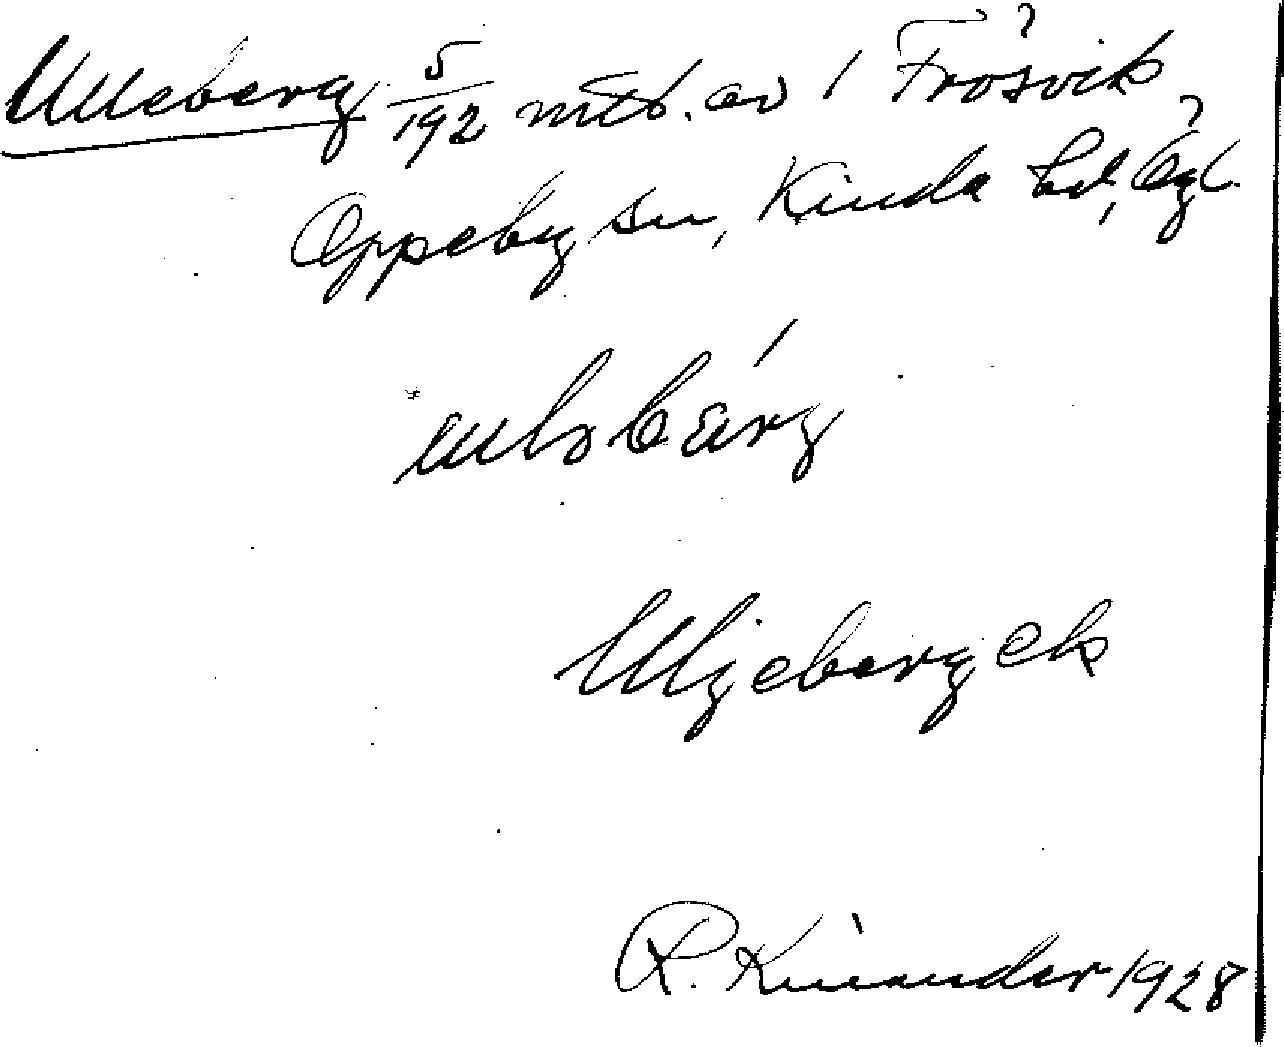 Ulleberg 5/192 mtl. av 1 Frösvik
Oppeby sn, Kinda hd, Ögl.
Uljeberg ek
R. Kinander 1928